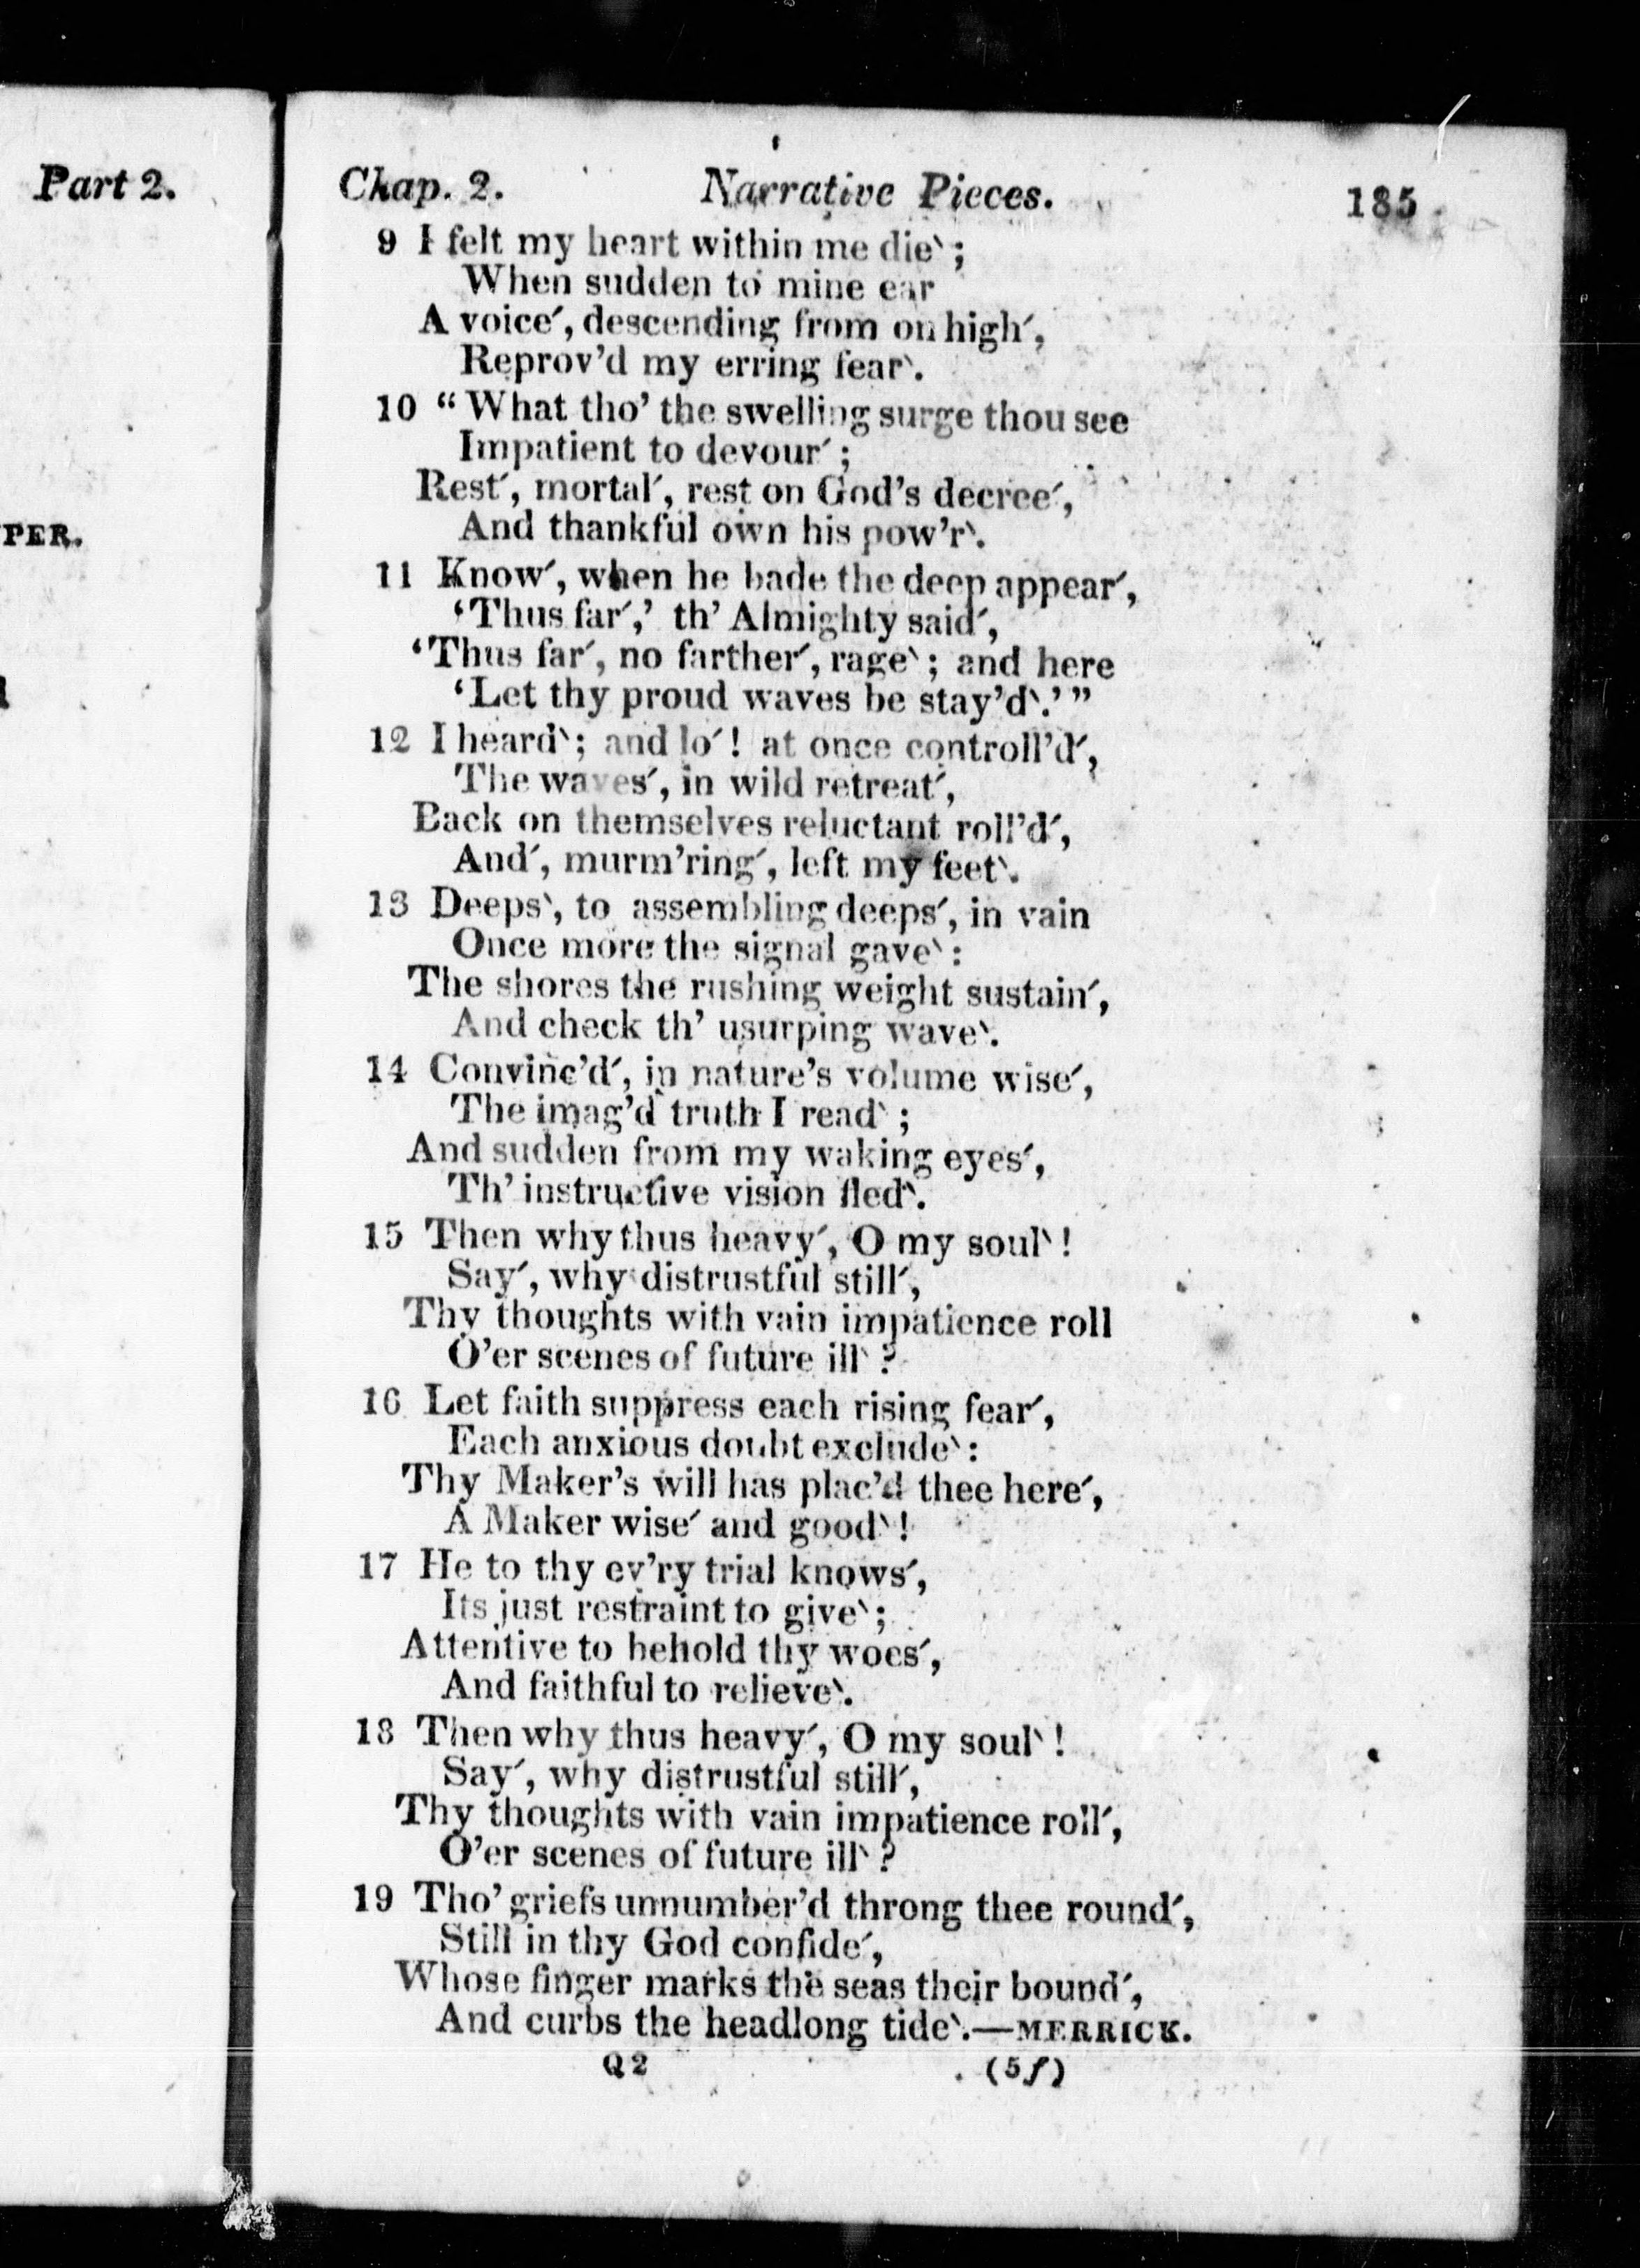 Part 2.
PER.
Chap. 2. Narrative Pieces. 185
9 I felt my heart within me die`;
When sudden to mine ear
A voice´, descending from on high´,
Reprov'd my erring fear`.
10 "What tho' the swelling surge thou see
Impatient to devour´;
Rest´, mortal´, rest on God's decree´,
And thankful own his pow'r`.
11 Know´, when he bade the deep appear´,
'Thus far´,' th' Almighty said´,
'Thus far´, no farther´, rage`; and here
'Let thy proud waves be stay'd`.'"
12 I heard`; and lo´! at once controll'd´,
The waves´, in wild retreat´,
Back on themselves reluctant roll'd´,
And´, murm'ring´, left my feet`.
13 Deeps`, to assembling deeps´, in vain
Once more the signal gave`:
The shores the rushing weight sustain´,
And check th' usurping wave`.
14 Convinc'd´, in nature's volume wise´,
The imag'd truth I read`;
And sudden from my waking eyes´,
Th' instructive vision fled`.
15 Then why thus heavy´, O my soul`!
Say´, why distrustful still´,
Thy thoughts with vain impatience roll
O'er scenes of future ill`?
16 Let faith suppress each rising fear´,
Each anxious doubt exclude`:
Thy Maker's will has plac'd thee here´,
A Maker wise´ and good`!
17 He to thy ev'ry trial knows´,
Its just restraint to give`;
Attentive to behold thy woes´,
And faithful to relieve`.
18 Then why thus heavy´, O my soul`!
Say´, why distrustful still´,
Thy thoughts with vain impatience roll´,
O'er scenes of future ill`?
19 Tho' griefs unnumber'd throng thee round´,
Still in thy God confide´,
Whose finger marks the seas their bound´,
And curbs the headlong tide`.—MERRICK.
Q 2 (5f)